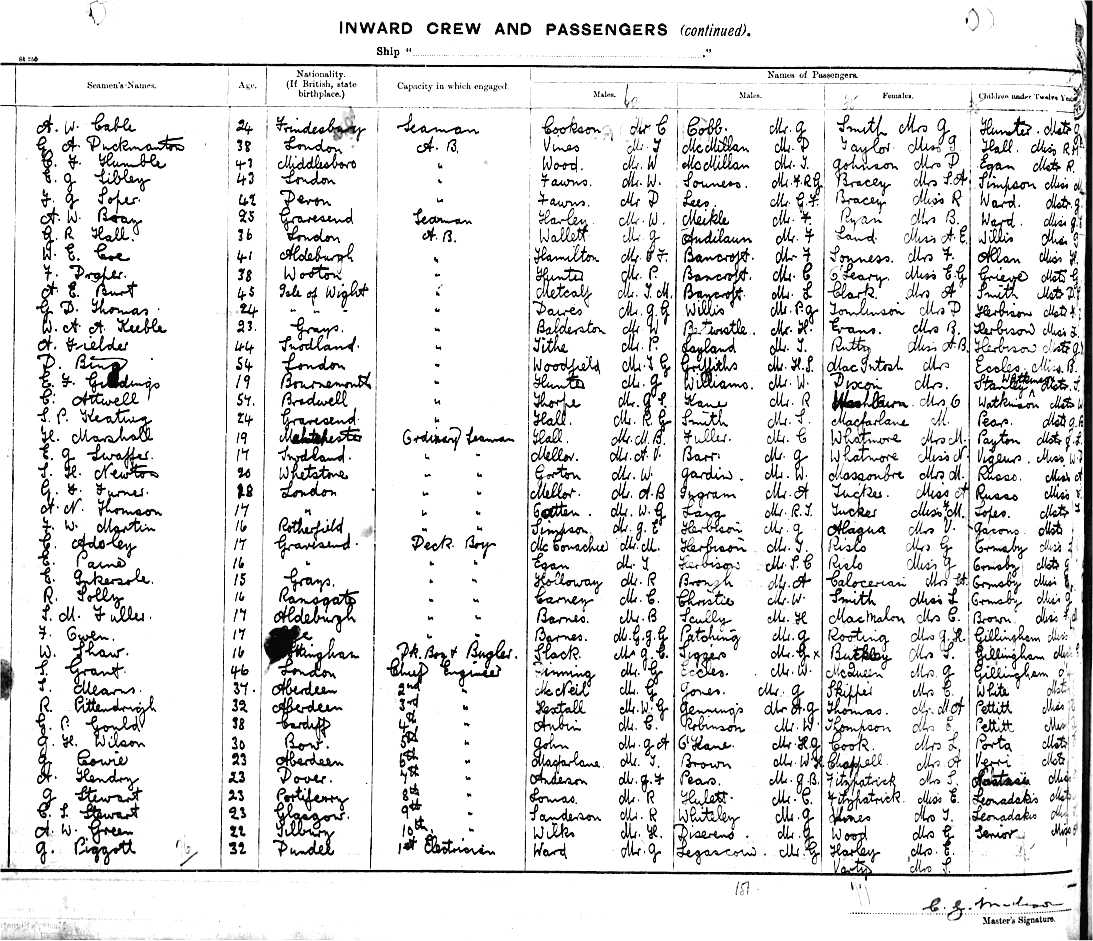 INWARD CREW AND PASSENGERS (continued).
Ship " ."
Names of Passengers.
Seamen's Names. Age. Nationality. (If British, state birthplace.) Capacity in which engaged. Males. Males. Females. Children under Twelve Years
A. W. Cable 24 Frindesbury Seaman Cookson Mr C Cobb. Mr. G Smith Mrs G Hunter. Mstr G
A. Duckmanton 38 London A. B. Vines Mr. T McMillan Mr. D Taylor Miss G Hall. Miss R
F. Humble 43 Middlesboro " Wood. Mr. W McMillan Mr. T. Johnson Mrs D Egan Mstr R.
G. Sibley 43 London " Fawns. Mr. W. Souness. Mr. F. R. G Bracey Mrs S. A. Simpson Miss
F. G Soper. 42 Devon " Fawns. Mr D Lees. Mr. G. F. Bracey Miss R Ward. Mstr. G
A. W. Bray 25 Gravesend Seaman Harley. Mr. W. Meikle Mr. F Ryan Mrs B. Ward. Miss
G. R. Hall. 36 London A. B. Wallett Mr. G Mr. F Land. Miss A. E. Willis Miss G
W. E. Coe 41 Aldeburgh " Hamilton Mr. C. F. Bancroft. Mr. F Souness. Mrs F. Allan Miss H.
F. Draper. 38 Wooton " Hunter Mr. P. Bancroft. Mr. C O'Leary Miss E. G Grieve Mstr G
A E. Burt 45 Isle of Wight " Metcalf Mr. T. M. Bancroft. Mr. L Clark. Mrs A Smith Mstr D.
G. D. Thomas. 24 " " " " Dawes Mr. G. G Willis Mr. P. G Tomlinson Mrs D Herbison Mstr
W. A A. Keeble 23. Grays. " Balderston Mr. W Bertwistle. Mr. H Evans. Mrs B. Herbison Miss
A. Fielder 44 Snodland. " Tithe Mr. P. Layland Mr. T. Rutty Miss A. B. Herbison Mstr G
D. Bing 54 London " Woodfield Mr. T. G Griffiths Mr. H. S. MacIntosh Mrs Eccles. Miss B.
F. Giddings 19 Bournemouth " Hunter Mr. G Williams. Mr. W. Dixon Mrs. Stanley Mstr. T.
C. Attwell 57. Bradwell " Thorpe Mr. G. L Kane Mr. R Washbourn. Mrs C Watkinson Mstr W
S. P. Keating 24 Gravesend. " Hall. Mr. R. G Smith Mr. T. Macfarlane M. Pears. Mstr G. A
H. Marshall 19 Manchester Ordinary Seaman Hall. Mr. M. B. Fuller. Mr. C Whatmore Mrs M. Payton Mstr G. L.
G. Swaffer 17 Snodland. " " Mellor. Mr. A. V. Barr. Mr. G Whatmore Miss N. Vigeurs. Miss W.
H. Newton 20 Whetstone " " Gorton Mr. W. Jardin. Mr. W. Massonbre Mrs M. Russo. Miss A
F. Turner. 28 London " " Mellor Mr. A. B Ingram Mr. A Tucker Miss A Russo Miss
A. N. Thomson 17 " " " Cotten. Mr. W. G Lang Mr. R. T. Tucker Miss M. Lopes. Mstr G
W. Martin 16 Rotherfield " " Simpson. Mr. G. E Herbison Mr. G Mrs V. Garons. Mstr
Adsley 17 Gravesend. Deck Boy McConachie Mr. M. Herbison. Mr. T. Risto Mrs G Ormsby Miss
Paine 16 " " " Egan Mr. T Herbison Mr. S. C Risto Miss G Ormsby Mstr G
Inkersole. 15 Grays. " " Holloway Mr. R Brough Mr. A Calocerian Mrs St. Ormsby Miss
Solly 16 Ramsgate " " Carney Mr. C. Christie Mr. W. Smith Miss L Ormsby Miss G
M. Fuller. 17 Aldeburgh " " Barnes. Mr. B Scully Mr. H MacMahon Mrs C. Brown. Miss
F. Owen. 17 " " Barnes. Mr. G. G. G Patching Mr. G Rooting Mrs G. H. Gillingham Miss
W. Shaw. 16 Dk. Boy & Bugler. Slack Mr G. C. Siggers Mr. G Buckley Mrs S. Gillingham Miss
Grant 46 London Chief Engineer Fenning Mr. G Eccles. Mr. W. McQueen Mrs. G Gillingham
Mearns. 37. Aberdeen 2nd " McNeil Mr. G Jones. Mr. G Skipper Mrs C. White Mstr
R. Pittendrigh 32 Aberdeen 3rd " Hextall Mr. W. G Jennings Mr A. G Thomas. Mr. M A Pettitt Miss
P. Gould 38 Cardiff 4th " Aubin Mr. C. Robinson Mr. W. Thompson Mrs E. Pettitt Miss
H. Wilson 30 Bow. 5th " John Mr. G. A O'Kane. Mr. H. G Cook. Mrs L. Porta Mstr
G. Cowie 23 Aberdeen 6th " Macfarlane. Mr. T. Brown Mr. W. H Chappell Mrs A Verri Mstr
A. Hendry 23 Dover. 7th " Anderson Mr. G. F Pears Mr. G. B. Fitzpatrick Mrs S.
G. Stewart 23 Portiferry 8th " Lomas. Mr. R Hulett. Mr. C. Fitzpatrick. Miss E. Leonadakis Mstr
G. S. Stewart 23 Glasgow. 9th " Sanderson Mr. R Whiteley Mr. G Hines Mrs T. Leonadakis Miss
A. W. Green 22 Tilbury 10th " Wilks Mr. H. Diserens Mr. G Wood Mrs G Senior Miss
G. Piggott 32 Dundee 1st Electrician Ward Mr. G Legascow. Mr. G Harley Mrs. E.
Varty Mrs S.
151.
Master's Signature.